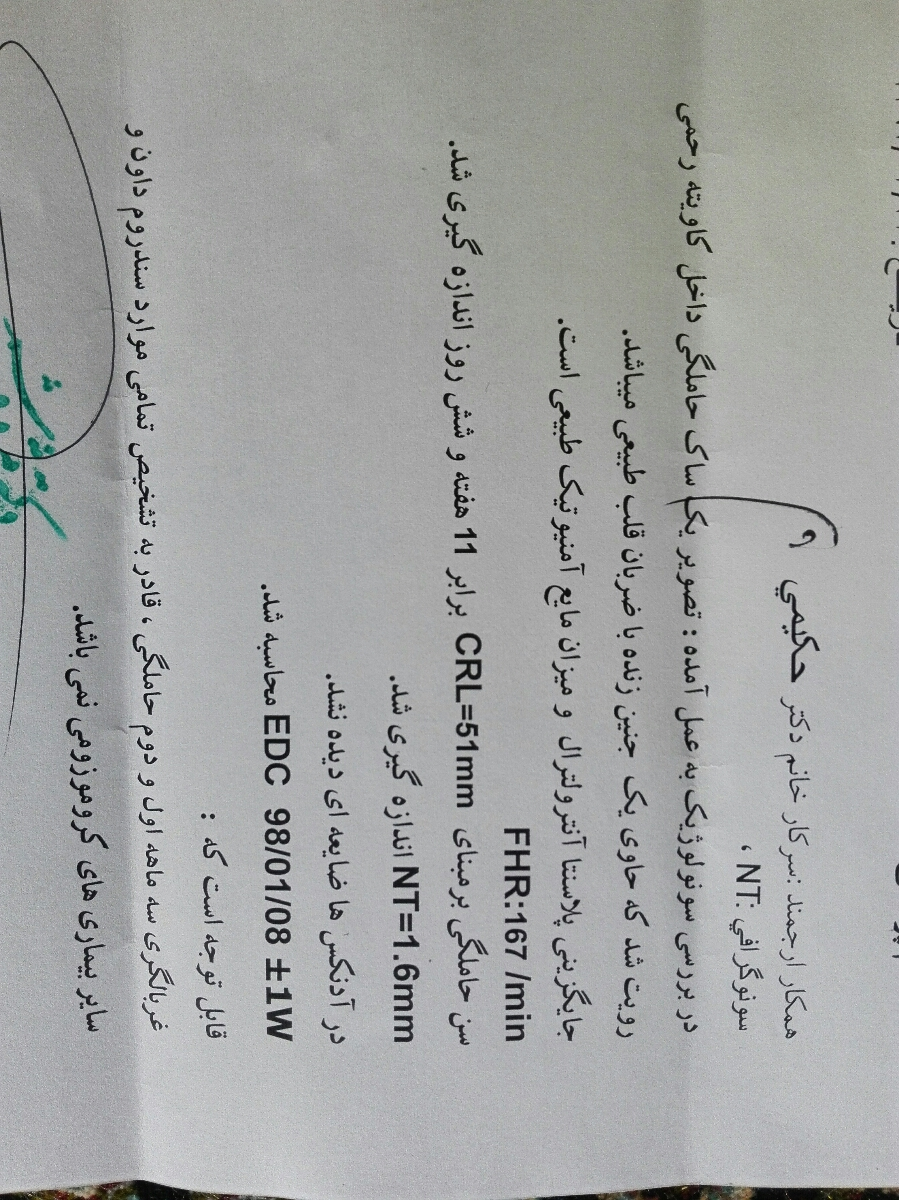 همکار ارجمند :سرکار خانم دکتر حکیمي
سونوگرافي :NT ،
در بررسی سونولوژیک به عمل آمده : تصویر یک ساک حاملگی داخل کاویته رحمی
رویت شد که حاوی یک جنین زنده با ضربان قلب طبیعی میباشد.
جایگزینی پلاسنتا آنترولترال و میزان مایع آمنیوتیک طبیعی است.
FHR:167 /min
سن حاملگی بر مبنای CRL=51mm برابر 11 هفته و شش روز اندازه گیری شد.
NT=1.6mm اندازه گیری شد.
در آدنکس ها ضایعه ای دیده نشد.
EDC 98/01/08 ±1W محاسبه شد.
قابل توجه است که :
غربالگری سه ماهه اول و دوم حاملگی ، قادر به تشخیص تمامی موارد سندروم داون و
سایر بیماری های کروموزومی نمی باشد.